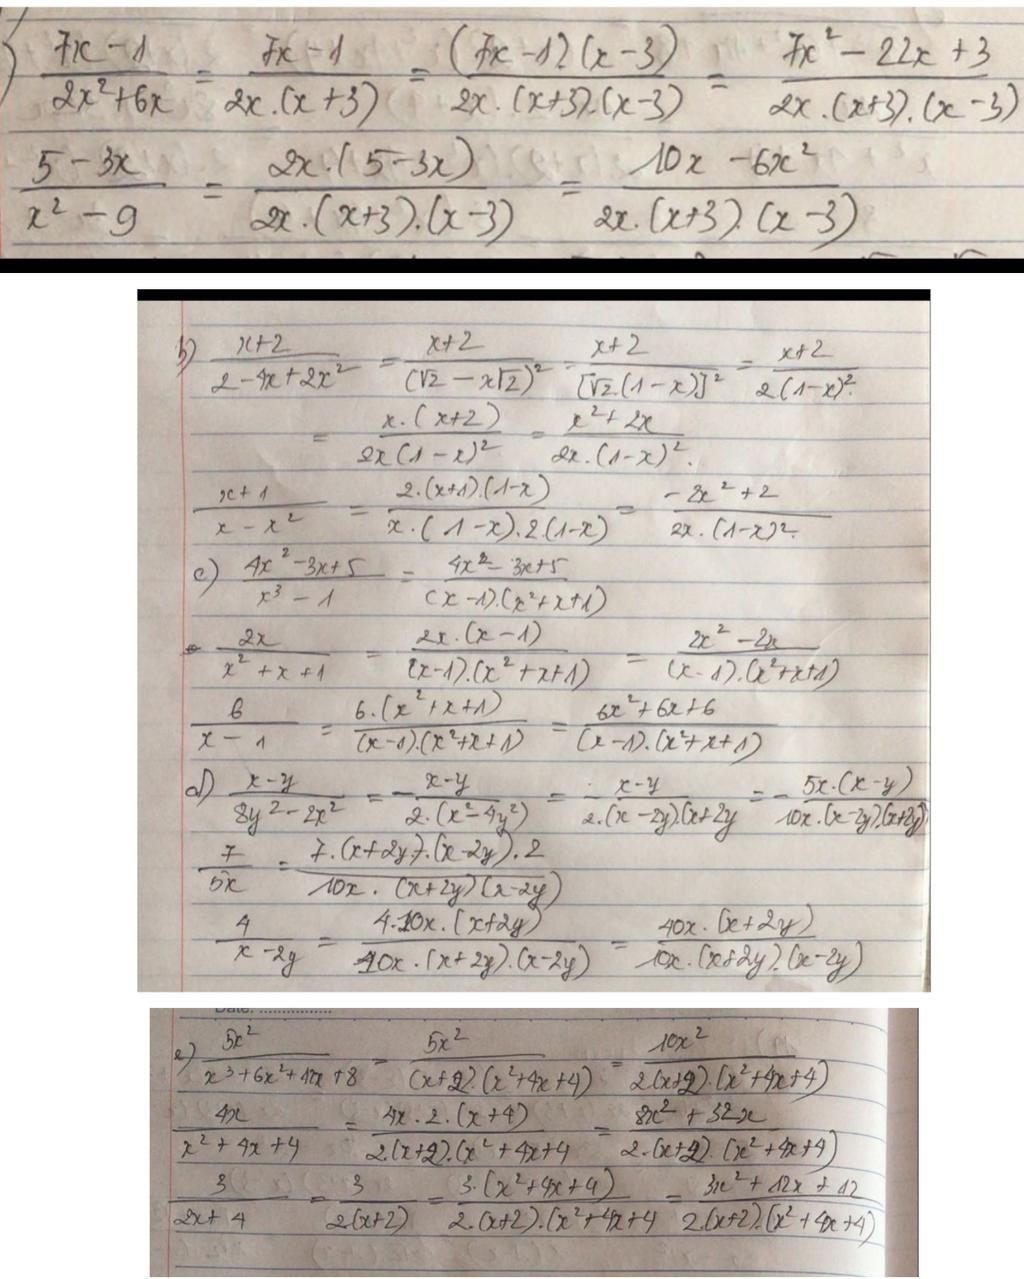 ) (7x - 1)/(2x² + 6x) = (7x - 1)/(2x.(x + 3)) = ((7x - 1).(x - 3))/(2x.(x+3).(x-3)) = (7x² - 22x + 3)/(2x.(x+3).(x - 3))
(5 - 3x)/(x² - 9) = (2x.(5 - 3x))/(2x.(x+3).(x - 3)) = (10x - 6x²)/(2x.(x+3).(x - 3))
b) (x+2)/(2 - 4x + 2x²) = (x+2)/(√2 - x√2)² = (x+2)/[√2.(1 - x)]² = (x+2)/(2.(1-x)².)
= (x.(x+2))/(2x(1 - x)²) = (x² + 2x)/(2x.(1-x)².)
(x+1)/(x - x²) = (2.(x+1).(1-x))/(x.(1 - x).2.(1-x)) = (-2x² + 2)/(2x.(1-x)².)
c) (4x² - 3x + 5)/(x³ - 1) = (4x² - 3x + 5)/((x - 1).(x² + x + 1))
(2x)/(x² + x + 1) = (2x.(x - 1))/((x-1).(x² + x + 1)) = (2x² - 2x)/((x-1).(x²+x+1))
6/(x - 1) = (6.(x² + x + 1))/((x-1).(x²+x+1)) = (6x² + 6x + 6)/((x-1).(x²+x+1))
d) (x - y)/(8y² - 2x²) = - (x-y)/(2.(x² - 4y²)) = - (x-y)/(2.(x - 2y).(x+2y) = - (5x.(x - y))/(10x.(x-2y).(x+2y))
7/(5x) = (7.(x+2y).(x-2y).2)/(10x.(x+2y)(x-2y))
4/(x - 2y) = (4.10x.(x+2y))/(10x.(x + 2y).(x-2y)) = (40x.(x+2y))/(10x.(x+2y).(x-2y))
Date: ................
e) (5x²)/(x³ + 6x² + 12x + 8) = (5x²)/((x+2).(x²+4x+4)) = (10x²)/(2(x+2).(x²+4x+4))
(4x)/(x² + 4x + 4) = (4x.2.(x+4))/(2.(x+2).(x² + 4x + 4) = (8x² + 32x)/(2.(x+2).(x² + 4x + 4))
3/(2x + 4) = 3/(2(x+2)) = (3.(x²+4x+4))/(2.(x+2).(x²+4x+4) = (3x² + 12x + 12)/(2.(x+2).(x² + 4x + 4))